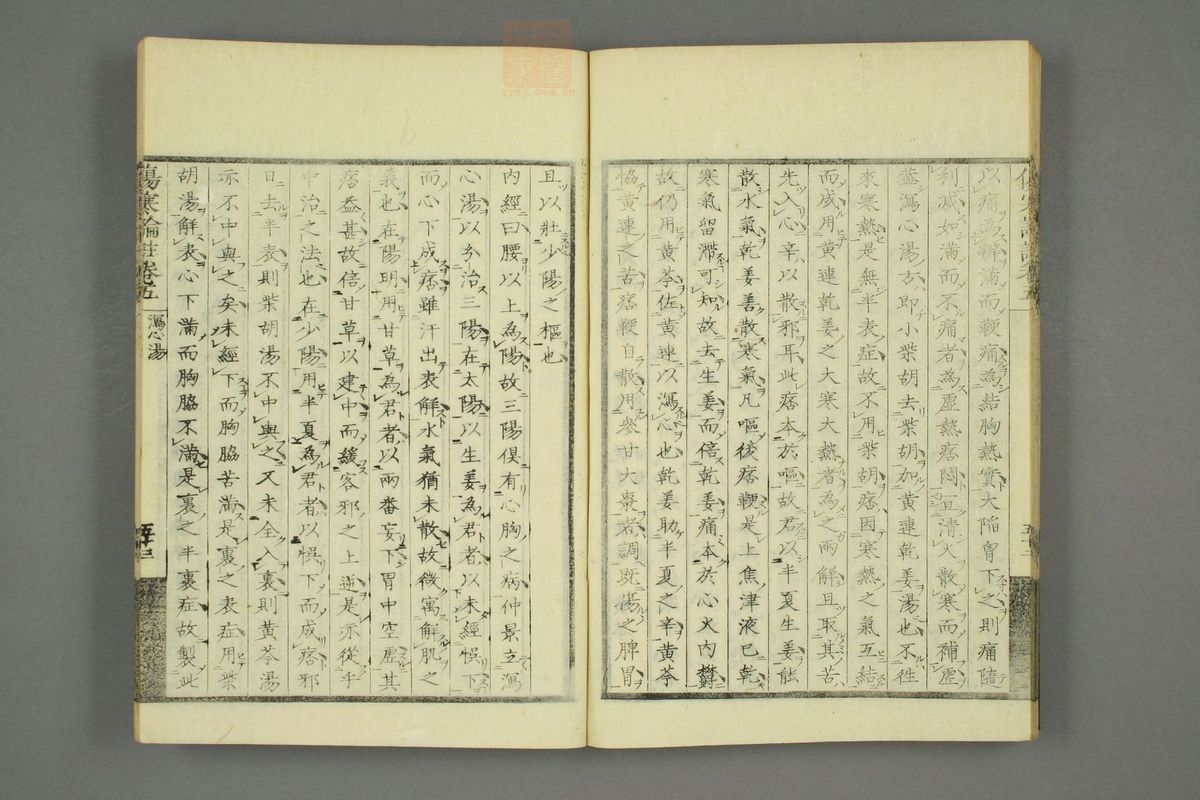 以痛為辨滿而鞕痛為結胸熱實大陷胷下之則痛隨
利減如滿而不痛者為虛熱痞悶宜清火散寒而補虛
蓋瀉心湯方即小柴胡去柴胡加黃連乾姜湯也不徃
來寒熱是無半表症故不用柴胡痞因寒熱之氣互結
而成用黃連乾姜之大寒大熱者為之兩解且取其苦
先入心辛以散邪耳此痞本於嘔故君以半夏生姜能
散水氣乾姜善散寒氣凡嘔後痞鞕是上焦津液已乾
寒氣留滯可知故去生姜而倍乾姜痛本於心火内欝
故仍用黃芩佐黃連以瀉心也乾姜助半夏之辛黃芩
恊黃連之苦痞鞕自散用參甘大棗者調既傷之脾胃
且以壯少陽之樞也
内經曰腰以上為陽故三陽俱有心胸之病仲景立瀉
心湯以分治三陽在太陽以生姜為君者以未經悞下
而心下成痞雖汗出表解水氣猶未散故微寓解肌之
義也在陽明用甘草為君者以兩番妄下胃中空虛其
痞益甚故倍甘草以建中而緩客邪之上逆是亦從乎
中治之法也在少陽用半夏為君者以悞下而成痞邪
已去半表則柴胡湯不中與之又未全入裏則黃芩湯
亦不中與之矣未經下而胸脇苦滿是裏之表症用柴
胡湯解表心下滿而胸脇不滿是裏之半裏症故製此
傷寒論註卷五
瀉心湯
zyaj.com.cn